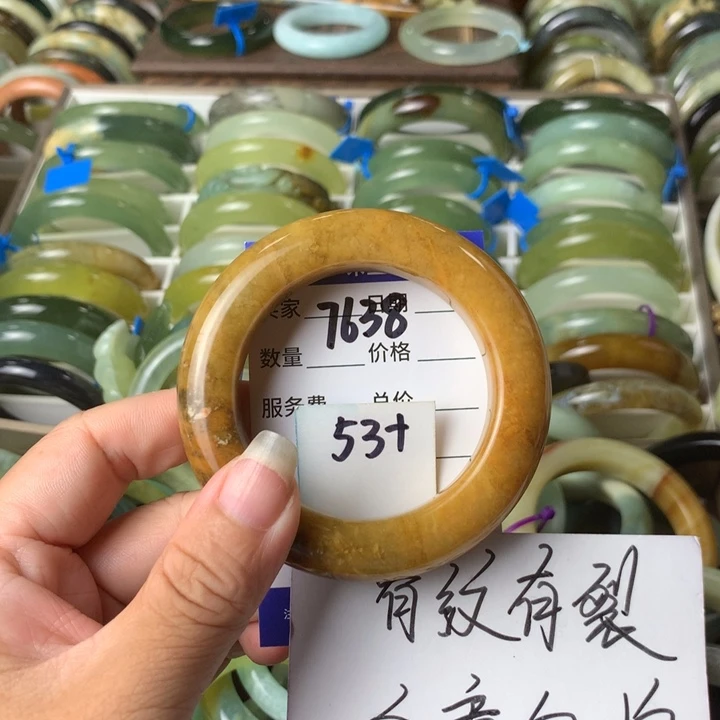 7638
卖家 日期
数量 价格
服务费 总价
53+
有纹有裂